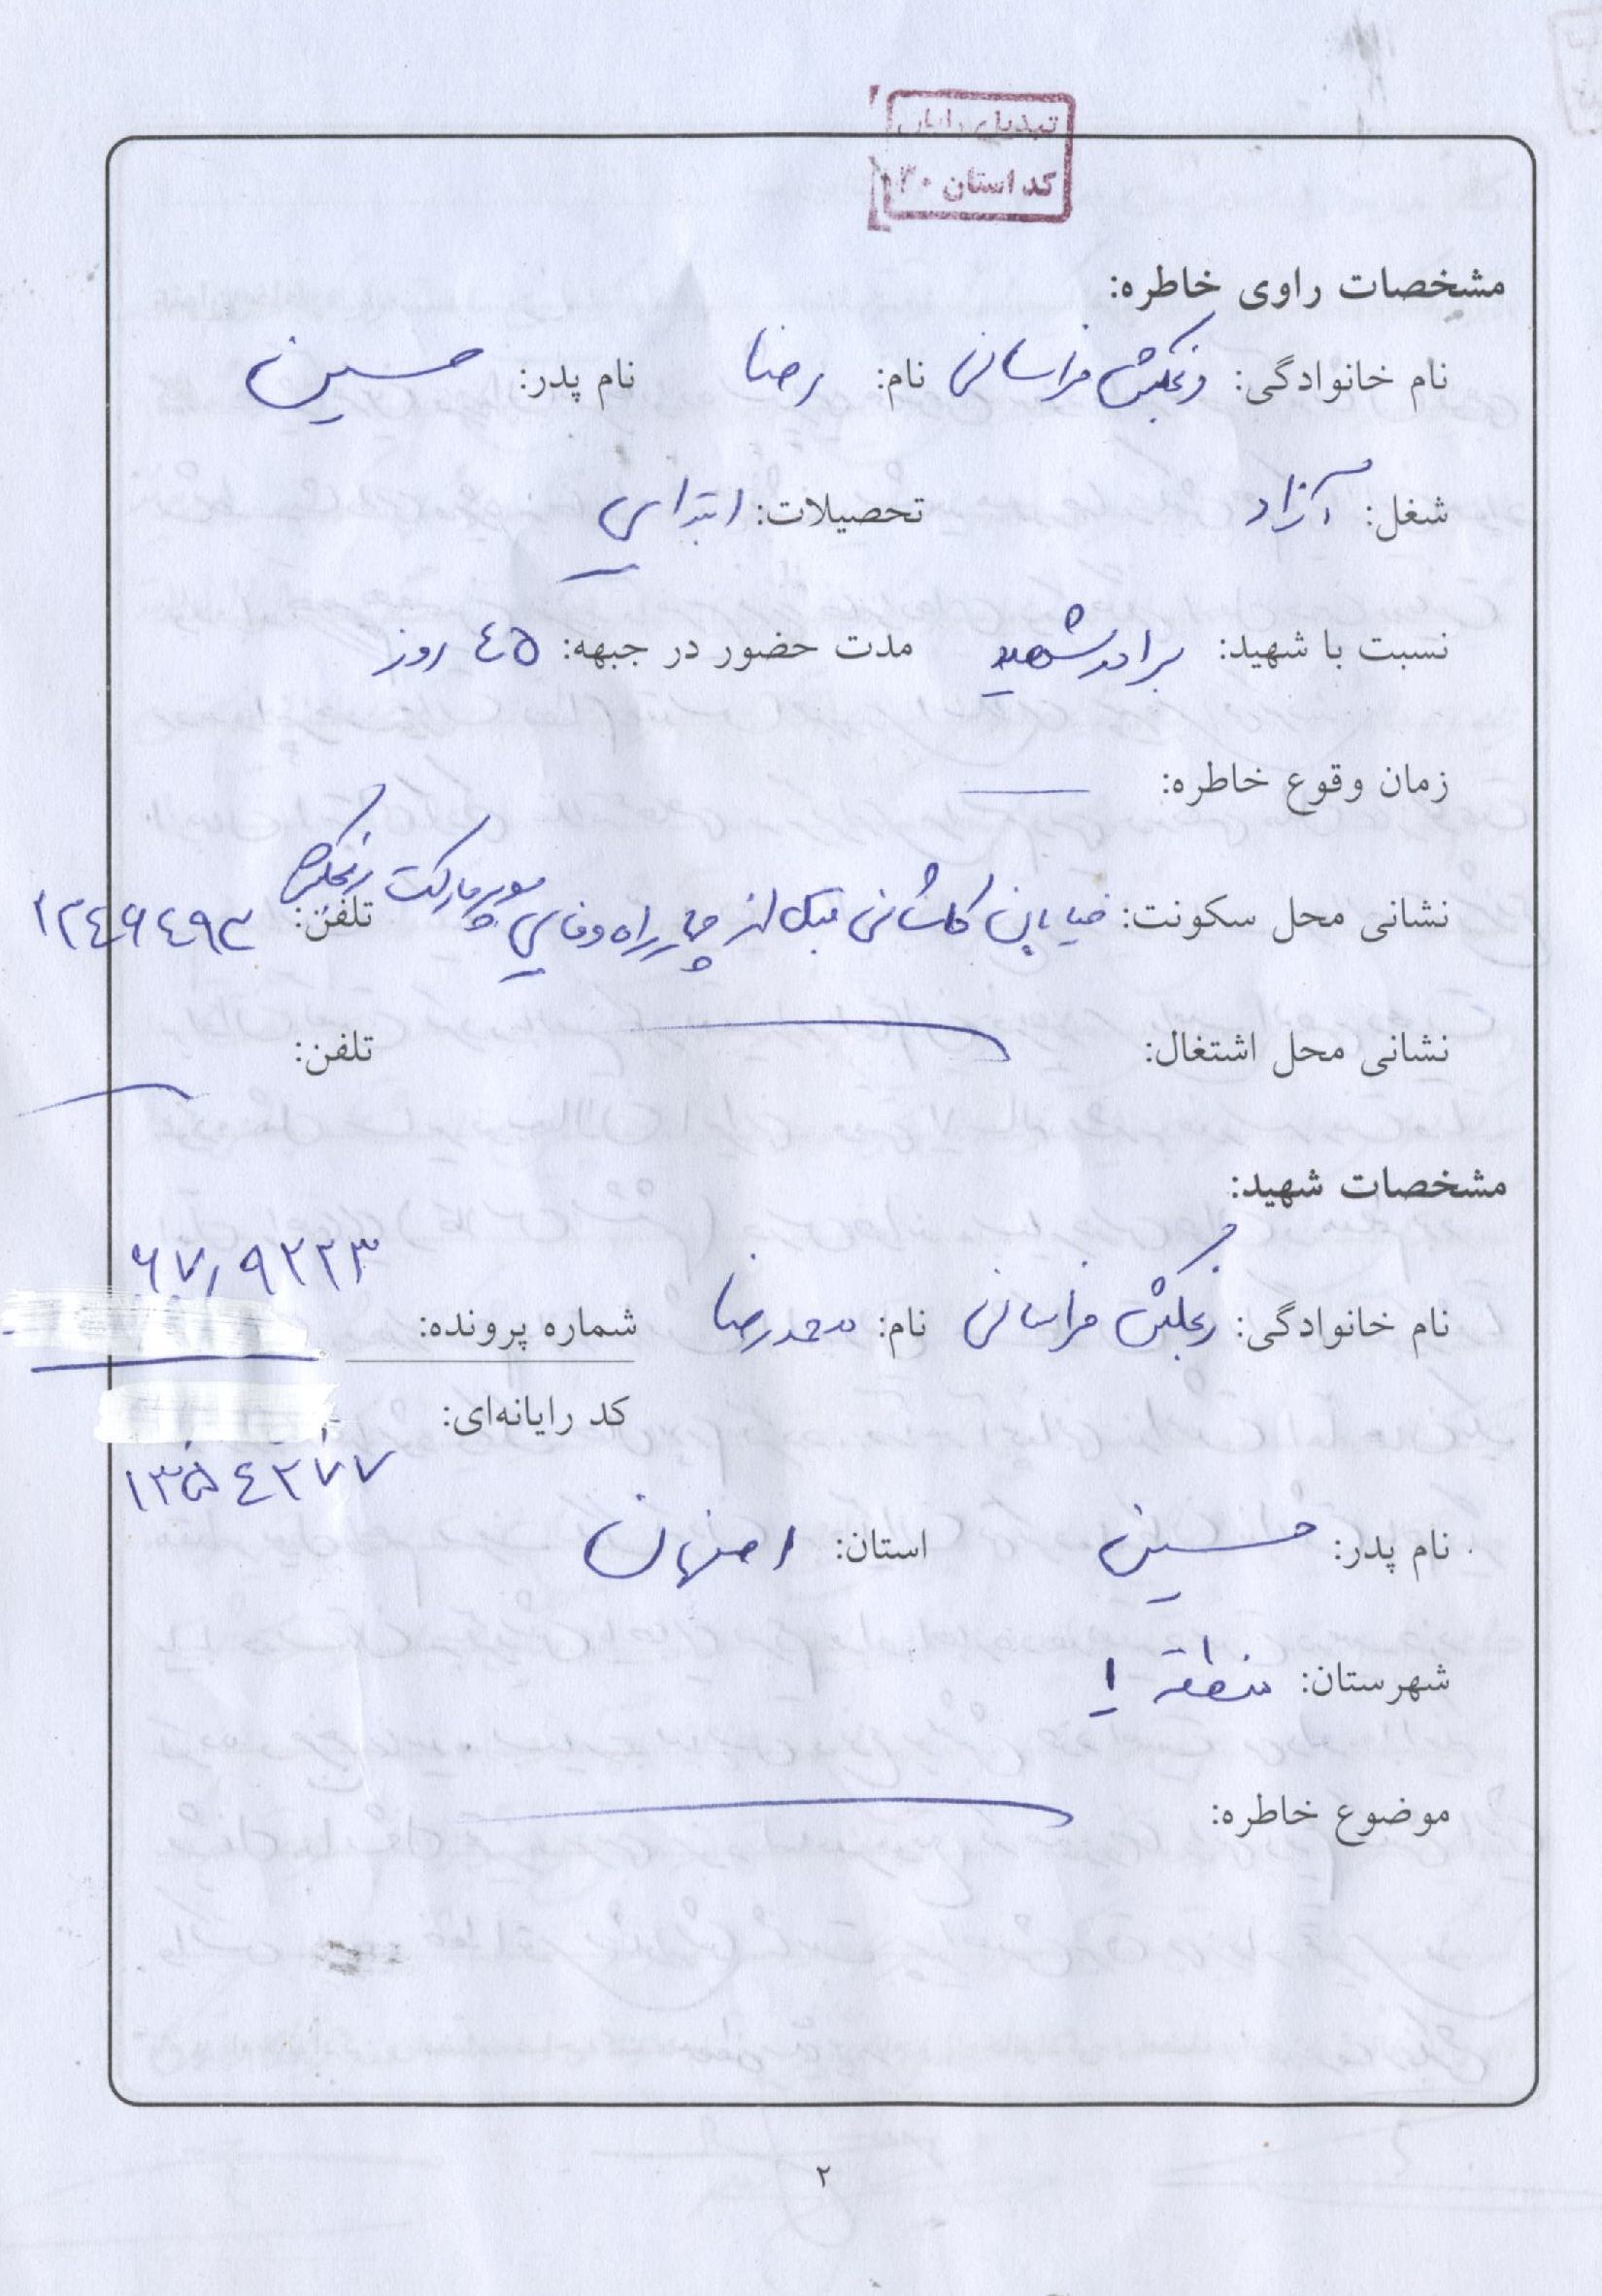 تبدیل رایان
کد استان ۳۰
مشخصات راوی خاطره:
نام خانوادگی: زنجکش خراسانی نام: رضا نام پدر: حسین
شغل: آزاد تحصیلات: ابتدایی
نسبت با شهید: برادر شهید مدت حضور در جبهه: ٤٥ روز
زمان وقوع خاطره:
نشانی محل سکونت: خیابان کاشانی قبل از چهارراه وفایی سوپرمارکت تلفن:
نشانی محل اشتغال: تلفن:
مشخصات شهید:
۶۷٫۹۲۲۳
نام خانوادگی: زنجکش خراسانی نام: محمدرضا شماره پرونده:
کد رایانه‌ای:
۱۳۵٤۲۷۷
نام پدر: حسین استان: اصفهان
شهرستان: منطقه ۱
موضوع خاطره:
۲